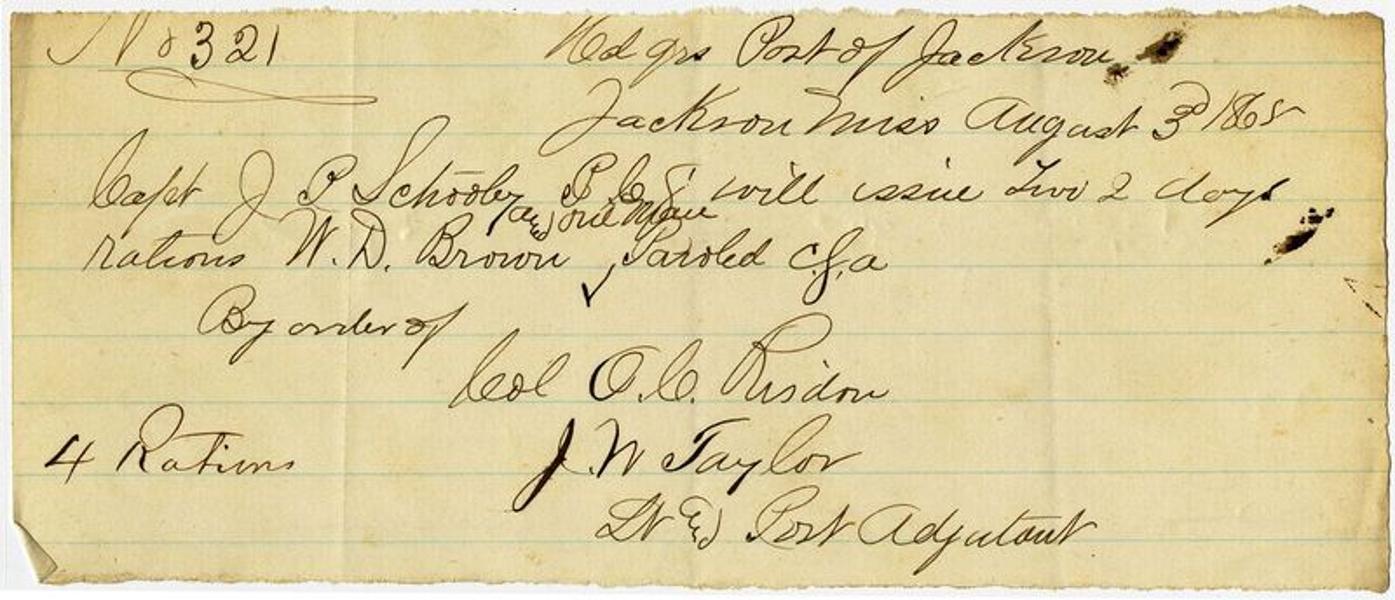 No 321
Hd qrs Post of Jackson
Jackson Miss August 3d 1865
Capt J P Schooley P C S will issue Two 2 days
and one Man
rations W. D. Brown Paroled C.S.A
By order of
Col O. C. Risdon
4 Rations
J. W Taylor
Lt and Post Adjutant